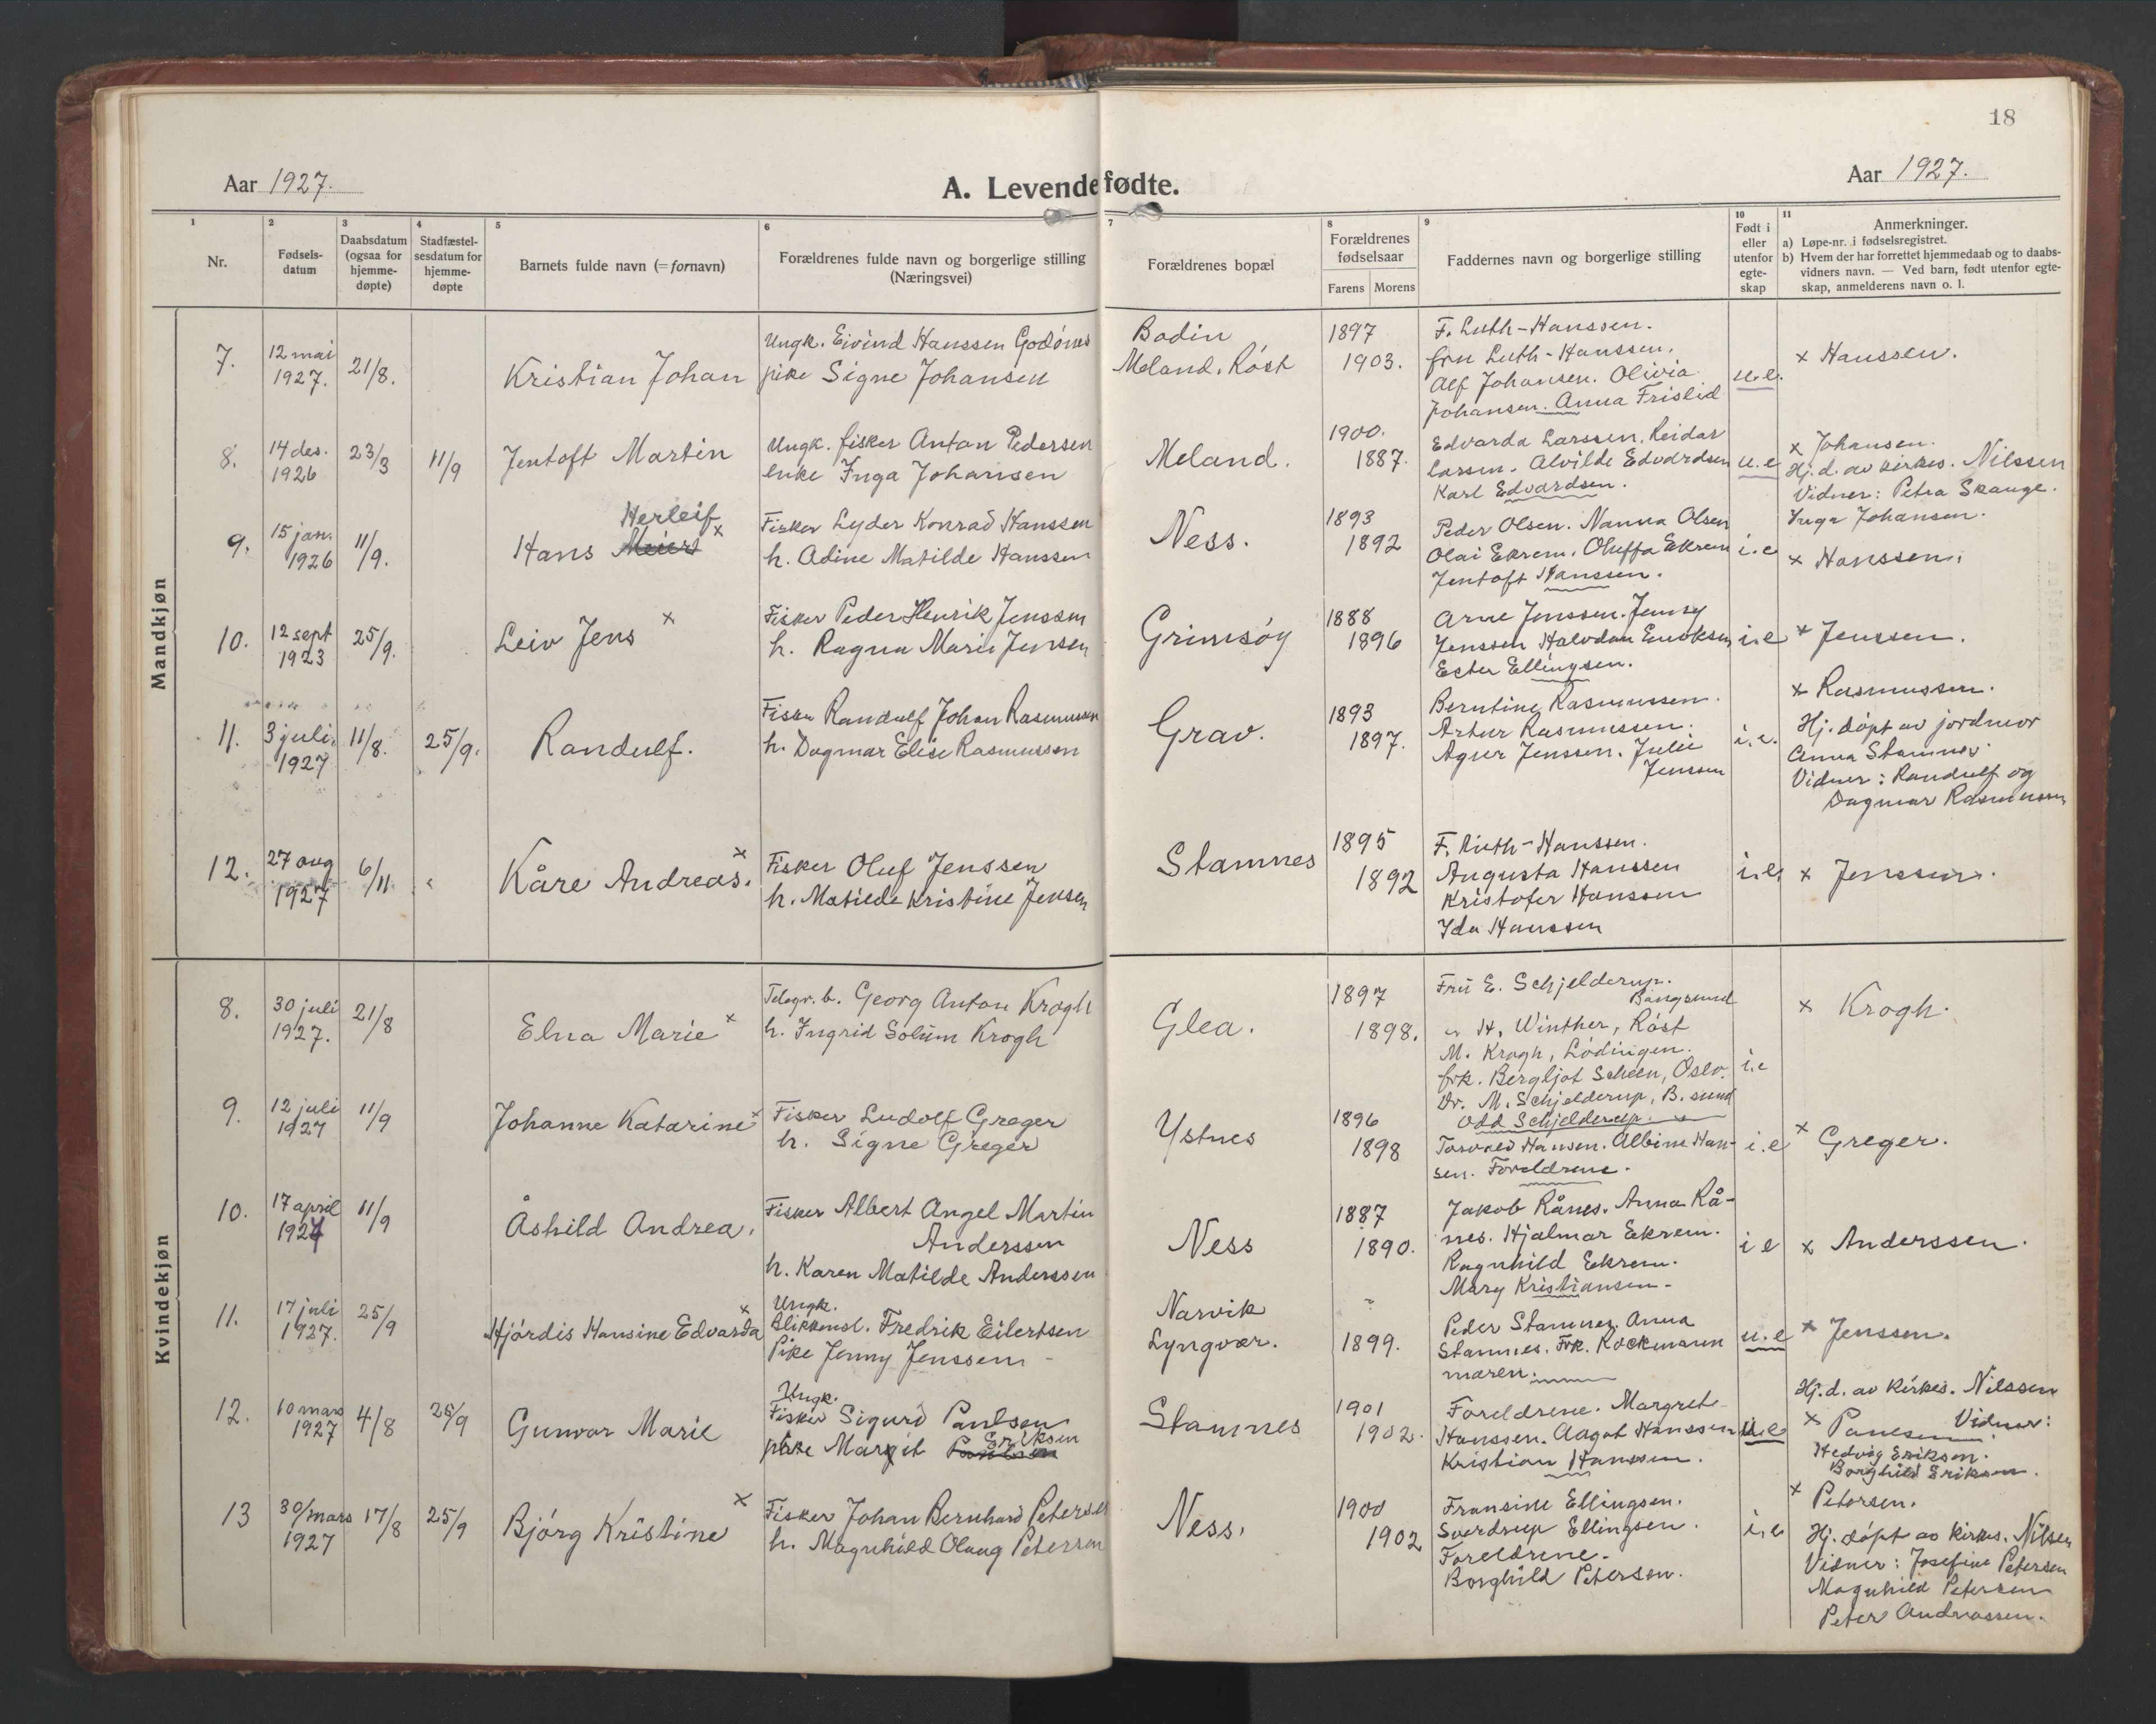 18
Aar 1927.
A. Levendefødte.
Aar 1927.
1
Nr.
2
Fødsels-
datum
3
Daabsdatum
(ogsaa for
hjemme-
døpte)
4
Stadfæstel-
sesdatum for
hjemme-
døpte
5
Barnets fulde navn (= fornavn)
6
Forældrenes fulde navn og borgerlige stilling
(Næringsvei)
7
Forældrenes bopæl
8
Forældrenes
fødselsaar
Farens
Morens
9
Faddernes navn og borgerlige stilling
10
Født i
eller
utenfor
egte-
skap
11
Anmerkninger.
a) Løpe-nr. i fødselsregistret.
b) Hvem der har forrettet hjemmedaab og to daabs-
vidners navn. — Ved barn, født utenfor egte-
skap, anmelderens navn o. l.
Mandkjøn
7.
12 mai
1927.
21/8.
Kristian Johan
Ungk. Eivind Hanssen Godønes
pike Signe Johansen
Bodin
Meland. Røst
1897
1903.
F. Luth-Hanssen.
fru Luth-Hanssen.
Alf Johansen. Olivia
Johansen. Anna Frislid
u.e.
x Hanssen.
8.
14 des.
1926
23/3
11/9
Jentoft Martin
Ungk. fisker Anton Pedersen
enke Inga Johansen
Meland.
1900.
1887.
Edvarda Larssen. Reidar
Larsen. Alvilde Edvardsen
Karl Edvardsen.
u.e
x Johansen.
Hj.d. av kirkes. Nilssen
Vidner: Petra Skauge.
Inga Johansen.
9.
15 jan.
1926
11/9.
Herleif
Hans Meier x
Fisker Lyder Konrad Hanssen
h. Adine Matilde Hanssen
Ness.
1893
1892
Peder Olsen. Nanna Olsen
Olai Ekrem. Oluffa Ekrem
Jentoft Hanssen.
i.e
x Hanssen.
10.
12 sept
1923
25/9.
Leiv Jens x
Fisker Peder Henrik Jenssen
h. Ragna Marie Jensen
Grimsøy
1888
1896
Arne Jenssen. Jenny
Jenssen Halvdan Enoksen
Ester Ellingsen.
i.e
x Jenssen.
11.
3 juli.
1927
11/8.
25/9.
Randulf.
Fisker Randulf Johan Rasmussen
h. Dagmar Elise Rasmussen
Grav.
1893
1897.
Berntine Rasmussen.
Artur Rasmussen.
Agner Jenssen. Julie
Jenssen
i.e.
x Rasmussen.
Hj. døpt av jordmor
Anna Stamnes.
Vidner: Randulf og
Dagmar Rasmussen
12.
27 aug
1927
6/11.
Kåre Andreas. x
Fisker Oluf Jenssen
h. Matilde Kristine Jensen
Stamnes
1895
1892
F. Luth-Hanssen.
Augusta Hanssen
Kristofer Hanssen
Ida Hanssen
i.e.
x Jenssen.
Kvindekjøn
8.
30 juli
1927.
21/8
Elna Marie x
Telegr. b. Georg Anton Krogh
h. Ingrid Solum Krogh
Glea.
1897
1898.
Fru E. Schjelderup.
Bangsund
" H. Winther, Røst
M. Krogh, Lødingen.
frk. Bergljot Scheen, Oslo.
Dr. M. Schjelderup, B.sund
Odd Schjelderup.
i.e
x Krogh.
9.
12 juli
1927
11/9
Johanne Katarine x
Fisker Ludolf Greger
h. Signe Greger
Ystnes
1896
1898
Torvald Hansen. Albine Han-
sen. Foreldrene.
i.e
x Greger.
10.
17 april
1927
11/9
Åshild Andrea.
Fisker Albert Angel Martin
Anderssen
h. Karen Matilde Anderssen
Ness
1887
1890.
Jakob Rånes. Anna Rå-
nes. Hjalmar Ekrem.
Ragnhild Ekrem.
Mary Kristiansen.
i e
x Anderssen.
11.
17 juli
1927.
25/9
Hjørdis Hansine Edvarda x
Ungk.
Blikkensl. Fredrik Eilertsen
Pike Jenny Jenssen
Narvik
Lyngvær.
1899.
Peder Stamnes. Anna
Stamnes. Frk. Rockmann
maren.
u.e
x Jenssen.
12.
10 mars
1927
4/8
25/9
Gunvor Marie
Ungk.
Fisker Sigurd Paulsen
Eriksen
pike Margit Paulsen
Stamnes
1901
1902.
Foreldrene. Margrete
Hanssen. Aagot Hanssen
Kristian Hanssen.
u.e
Hj.d. av kirkes. Nilssen
x Paulsen. Vidner:
Hedvig Eriksen.
Borghild Eriksen.
13
30/mars
1927
17/8
25/9
Bjørg Kristine x
Fisker Johan Bernhard Petersen
h. Magnhild Olaug Petersen
Ness.
1900
1902
Fransine Ellingsen.
Sverdrup Ellingsen.
Foreldrene.
Borghild Petersen.
i.e
x Petersen.
Hj. døpt av kirkes. Nilsen
Vidner: Josefine Petersen
Magnhild Petersen
Peter Andreassen.